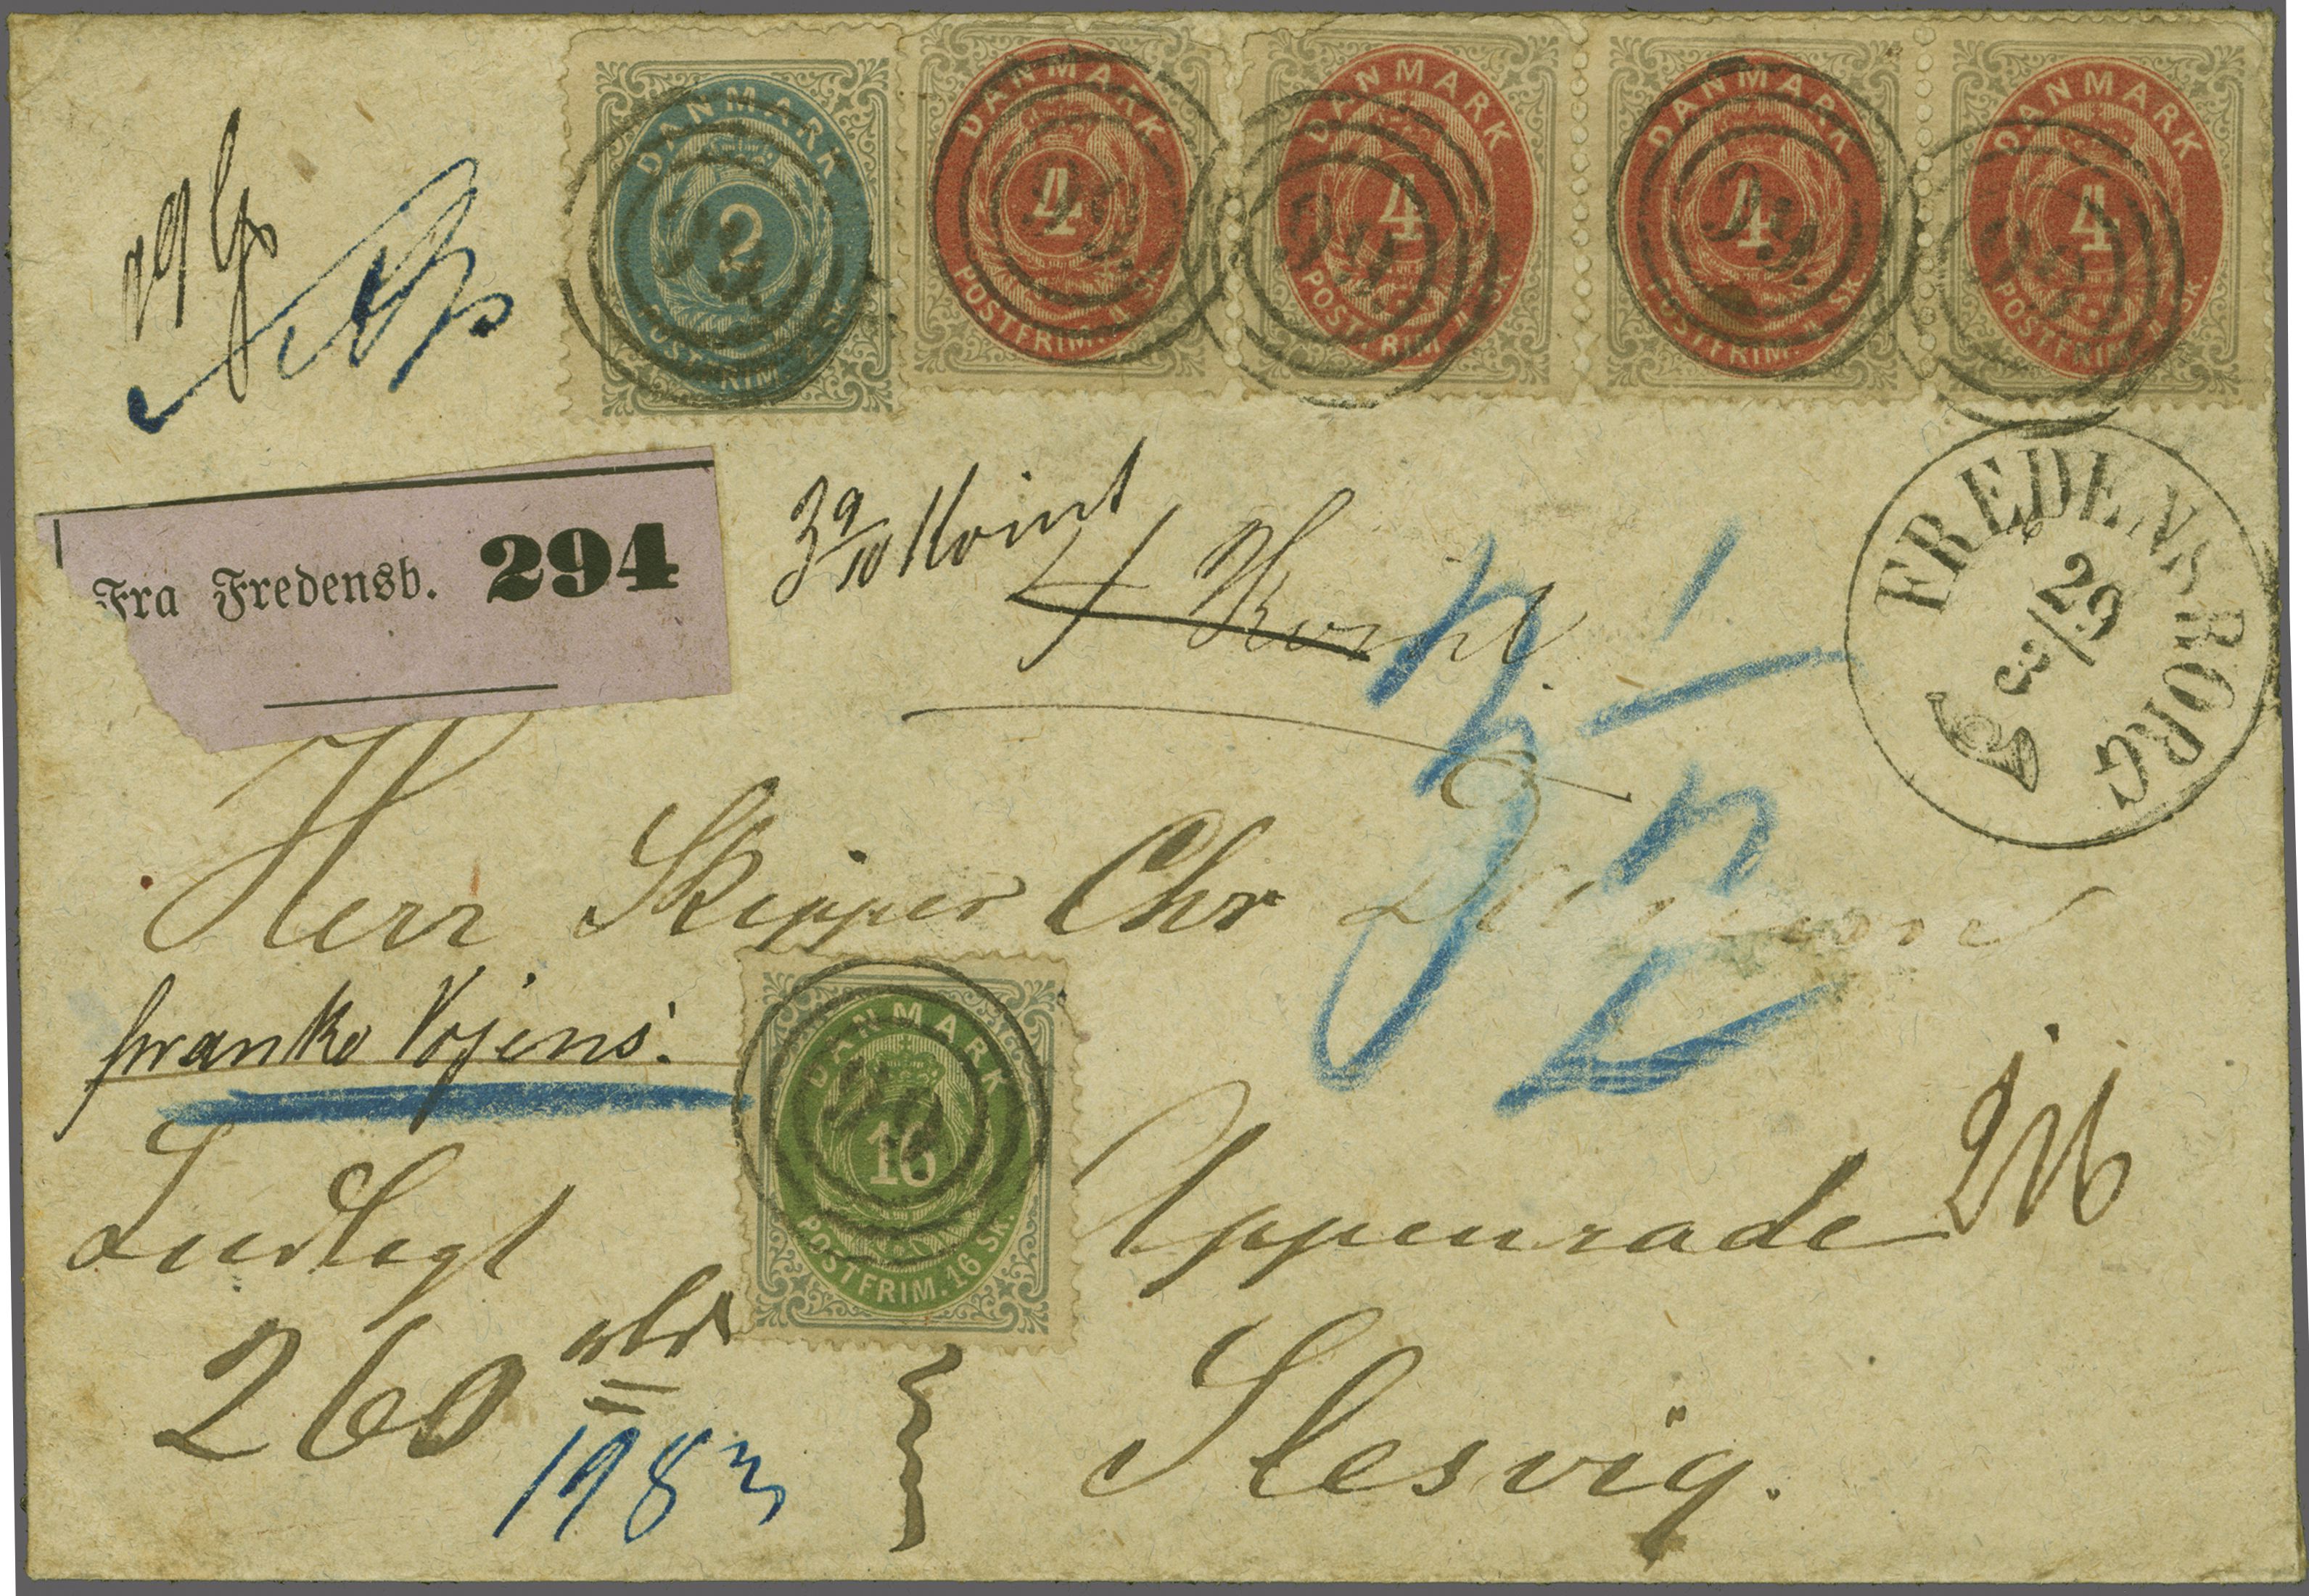 DANMARK 2 POSTFRIM. 2 SK.
DANMARK 4 POSTFRIM. 4 SK.
DANMARK 4 POSTFRIM. 4 SK.
DANMARK 4 POSTFRIM. 4 SK.
DANMARK 4 POSTFRIM. 4 SK.
Fra Fredensb. 294
3 9/10 Kvint
4 Kvint.
FREDENSBORG
29/3
Herr Skipper Chr
franko Vojens.
DANMARK 16 POSTFRIM. 16 SK.
Indlagt
Appenrade
260
Slesvig.
1983